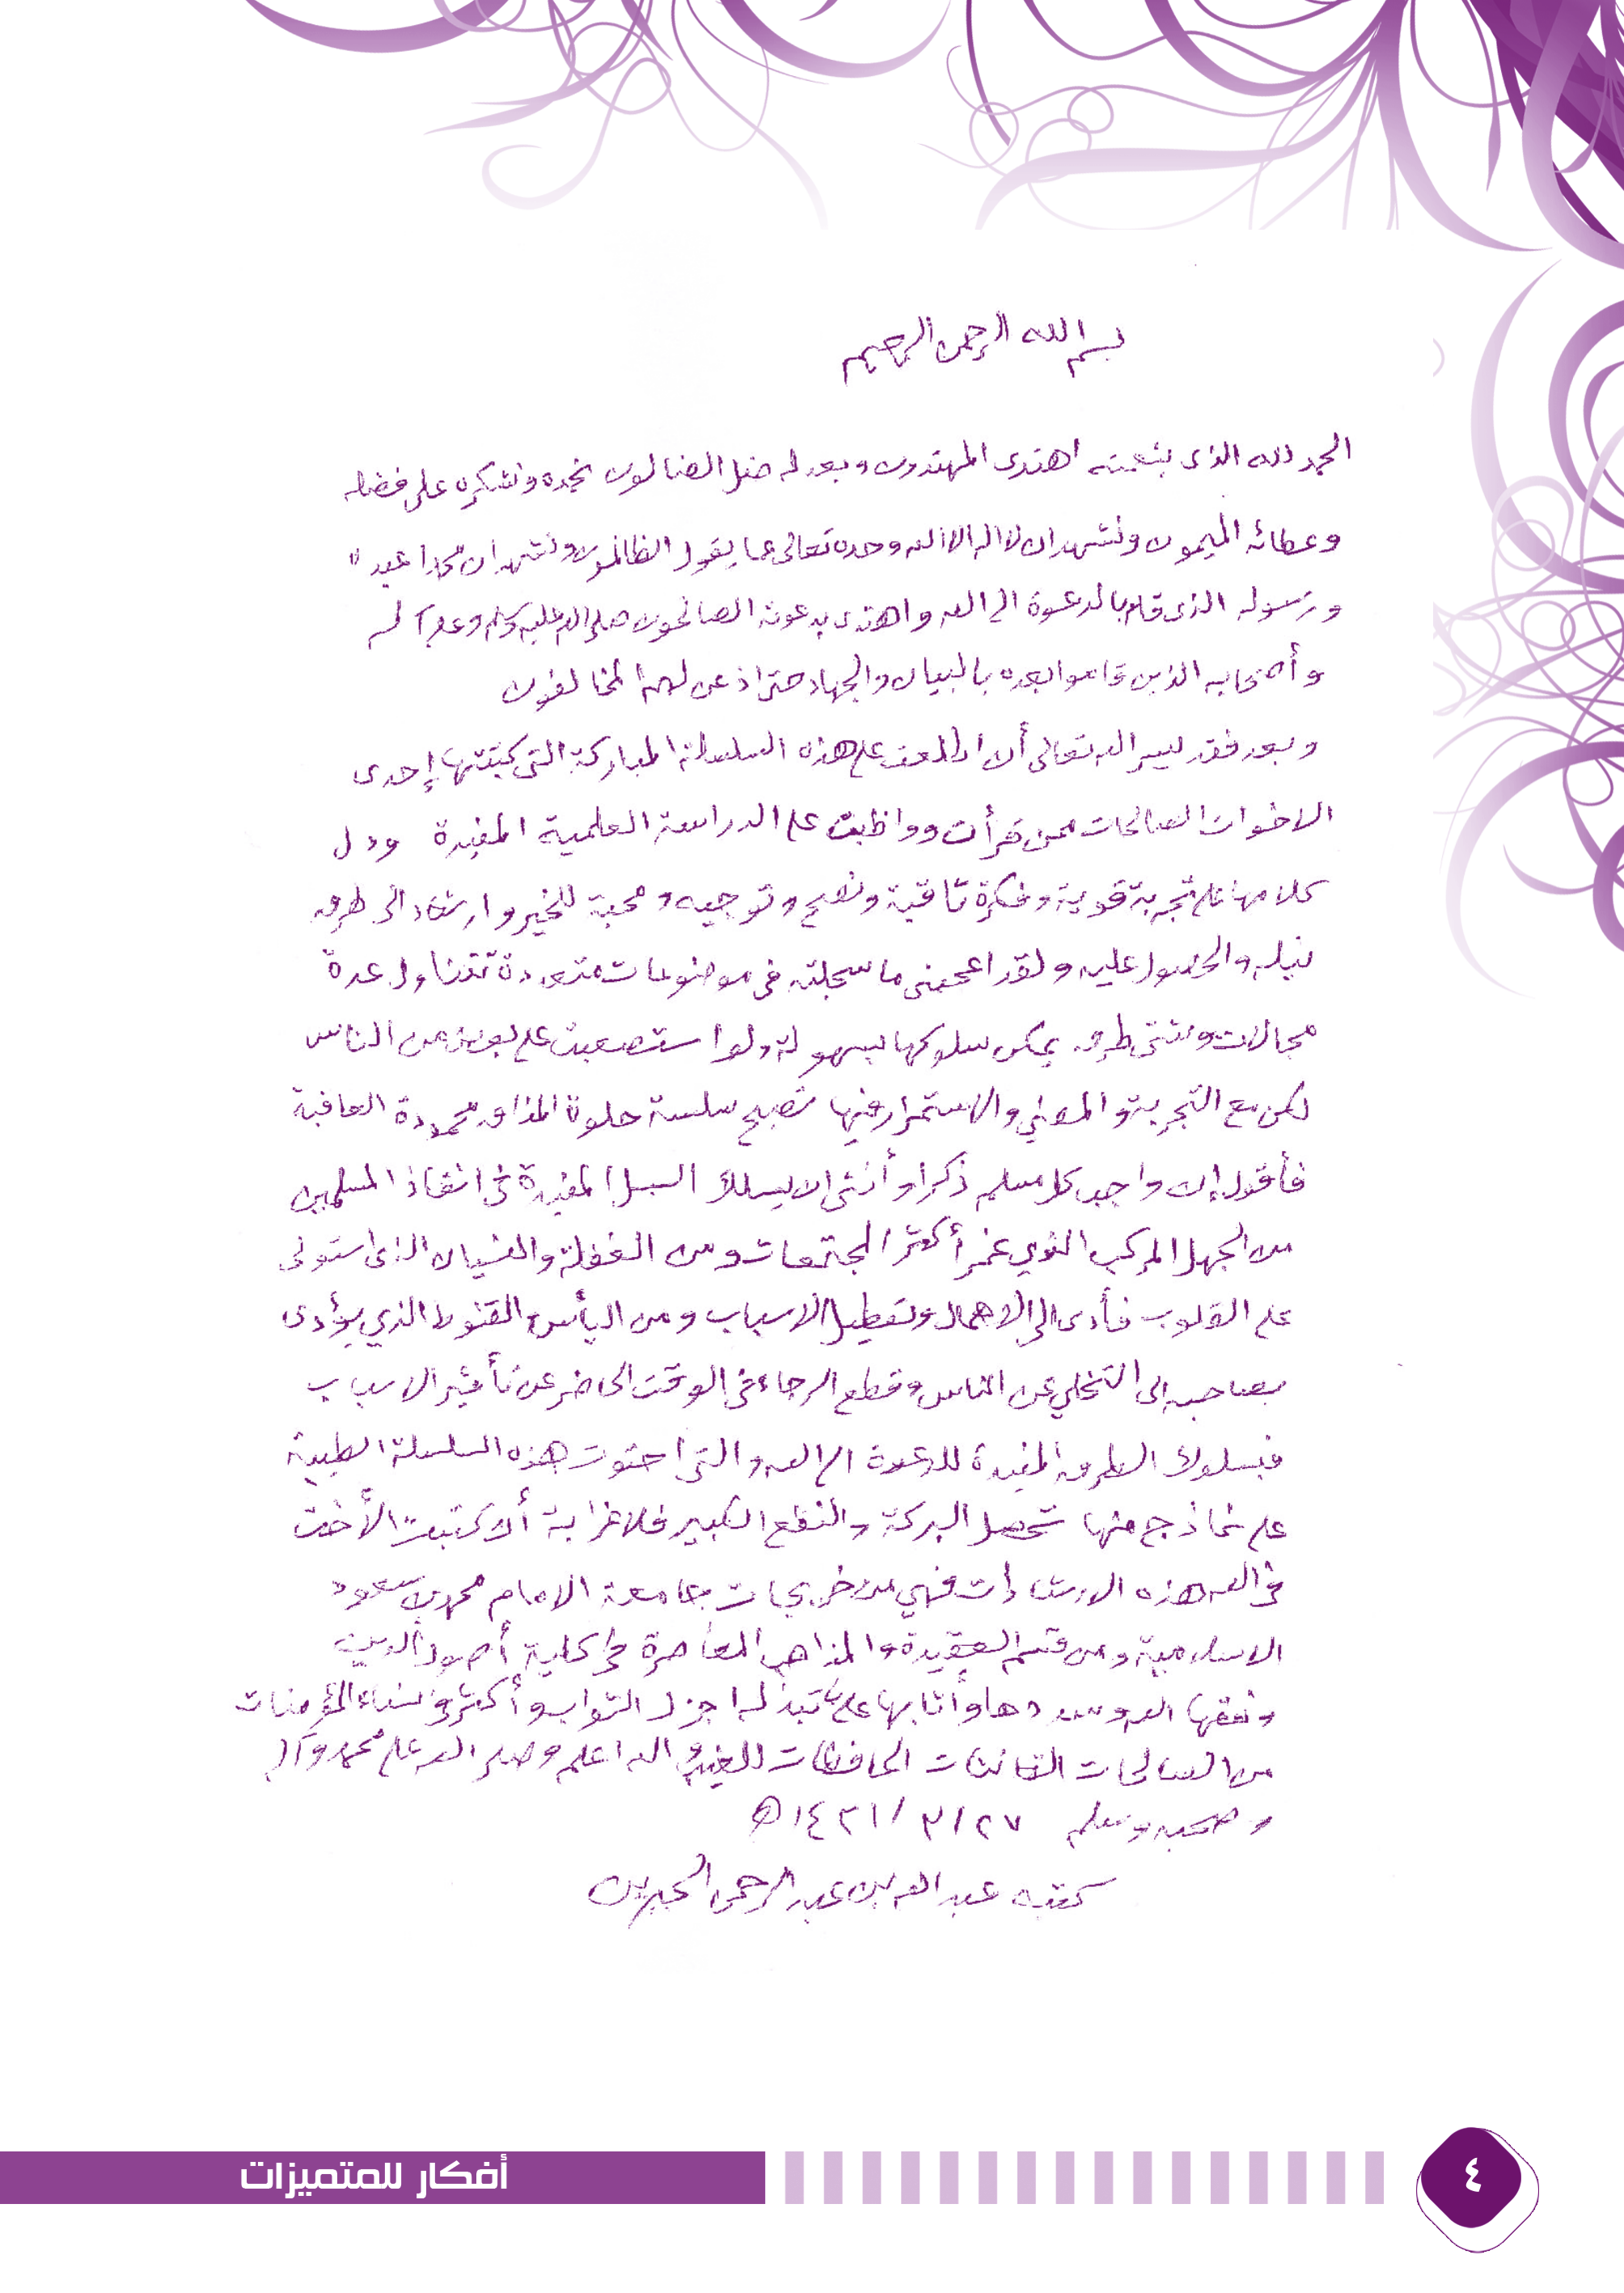 بسم الله الرحمن الرحيم
الحمد لله الذى بنعمته اهتدى المهتدون وبعدله ضل الضالون نحمده ونشكره على فضله
وعطائه الميمون ونشهد ان لا اله الا الله وحده تعالى عما يقول الظالمون ونشهد ان محمدا عبده
ورسوله الذى قام بالدعوة الى الله واهتدى بدعوته الصالحون صلى الله عليه وسلم وعلى آله
وأصحابه الذين قاموا بعده بالبيان والجهاد حتى اذعن لهم المخالفون
وبعد فقد يسر الله تعالى أن اطلعت على هذه السلسلة المباركة التى كتبتها إحدى
الاخوات الصالحات ممن قرأت وواظبت على الدراسة العلمية المفيدة ودل
كلامها على تجربة قوية وفكرة ثاقبة ونصح وتوجيه ومحبة للخير وارشاد الى طرق
نيله والحصول عليه ولقد اعجبنى ما سجلته فى موضوعات متعددة تتناول عدة
مجالات وشتى طرق يمكن سلوكها بسهولة ولو استصعبت على بعض من الناس
لكن مع التجربة والمضي والاستمرار فيها تصبح سلسة حلوة المذاق محمودة العاقبة
فأقول إن واجب كل مسلم ذكرا أو أنثى ان يسلك السبل المفيدة فى انقاذ المسلمين
من الجهل المركب الذي غمر أكثر المجتمعات ومن الغفلة والنسيان الذى استولى
على القلوب فأدى الى الاهمال وتعطيل الاسباب ومن اليأس والقنوط الذي يؤدى
بصاحبه الى التخلي عن الناس وقطع الرجاء فى الوقت الحاضر عن تأثير الاسباب
فبسلوك الطرق المفيدة للدعوة الى الله والتى احتوت هذه السلسلة الطيبة
على نماذج منها تحصل البركة والنفع الكبير فلا غرابة أن كتبت الأخت
فى الله هذه الارشادات فهي من خريجات جامعة الامام محمد بن سعود
الاسلامية ومن قسم العقيدة والمذاهب المعاصرة فى كلية أصول الدين
وفقها الله وسددها وأثابها على ما تبذله اجزل الثواب وأكثر فى نساء المؤمنات
من الصالحات القانتات الحافظات للغيب والله اعلم وصلى الله على محمد وآله
وصحبه وسلم ٢٧/٣/١٤٢١هـ
كتبه عبد الله بن عبد الرحمن الجبرين
أفكار للمتميزات
٤